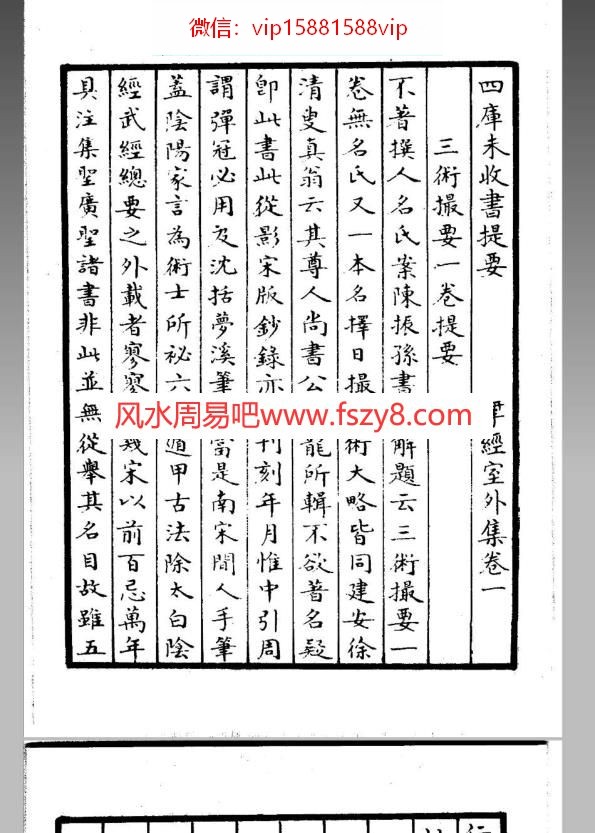 微信：vip15881588vip
四庫未收書提要 經室外集卷一
三術撮要一卷提要
不著撰人名氏案陳振孫書解題云三術撮要一
卷無名氏又一本名擇日撮術大略皆同建安徐
清叟真翁云其尊人尚書公龍所輯不欲著名疑
卽此書此從影宋版鈔錄亦刊刻年月惟中引周
謂彈冠必用及沈括夢溪筆當是南宋間人手筆
蓋陰陽家言為術士所祕六遁甲古法除太白陰
經武經總要之外載者寥寥幾宋以前百忌萬年
具注集聖廣聖諸書非此並無從舉其名目故雖五
风水周易吧www.fszy8.com